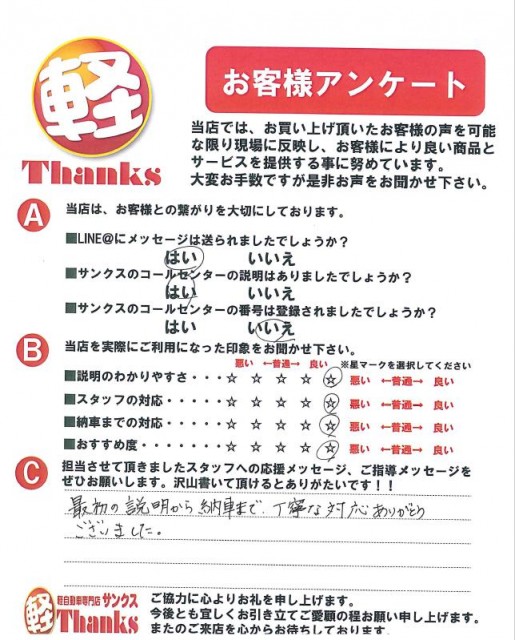 軽
Thanks
お客様アンケート
当店では、お買い上げ頂いたお客様の声を可能
な限り現場に反映し、お客様により良い商品と
サービスを提供する事に努めています。
大変お手数ですが是非お声をお聞かせ下さい。
A 当店は、お客様との繋がりを大切にしております。
■LINE@にメッセージは送られましたでしょうか?
はい いいえ
■サンクスのコールセンターの説明はありましたでしょうか?
はい いいえ
■サンクスのコールセンターの番号は登録されましたでしょうか?
はい いいえ
B 当店を実際にご利用になった印象をお聞かせ下さい。
悪い ←普通→ 良い ※星マークを選択してください
■説明のわかりやすさ・・・・☆ ☆ ☆ ☆ ☆ 悪い ←普通→ 良い
■スタッフの対応・・・・・☆ ☆ ☆ ☆ ☆ 悪い ←普通→ 良い
■納車までの対応・・・・・☆ ☆ ☆ ☆ ☆ 悪い ←普通→ 良い
■おすすめ度・・・・・・・☆ ☆ ☆ ☆ ☆ 悪い ←普通→ 良い
C 担当させて頂きましたスタッフへの応援メッセージ、ご指導メッセージを
ぜひお願いします。沢山書いて頂けるとありがたいです!!
最初の説明から納車まで、丁寧な対応ありがとう
ございました。
軽 軽自動車専門店 サンクス
Thanks
ご協力に心よりお礼を申し上げます。
今後とも宜しくお引き立てご愛顧の程お願い申し上げます。
またのご来店を心からお待ちしております。